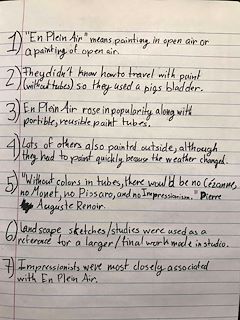 1) "En Plein Air" means painting in open air or
a painting of open air.
2) They didn't know how to travel with paint
(without tubes) so they used a pigs bladder.
3) En Plein Air rose in popularity along with
portible, reusible paint tubes.
4) Lots of others also painted outside, although
they had to paint quickly becuse the weather changed.
5) "Without colors in tubes, there would be no Cézanne,
no Monet, no Pissaro, and no Impressionism." Pierre
Auguste Renoir.
6) Landscape sketches/studies were used as a
reference for a larger/final work made in studio.
7) Impressionists were most closely associated
with En Plein Air.